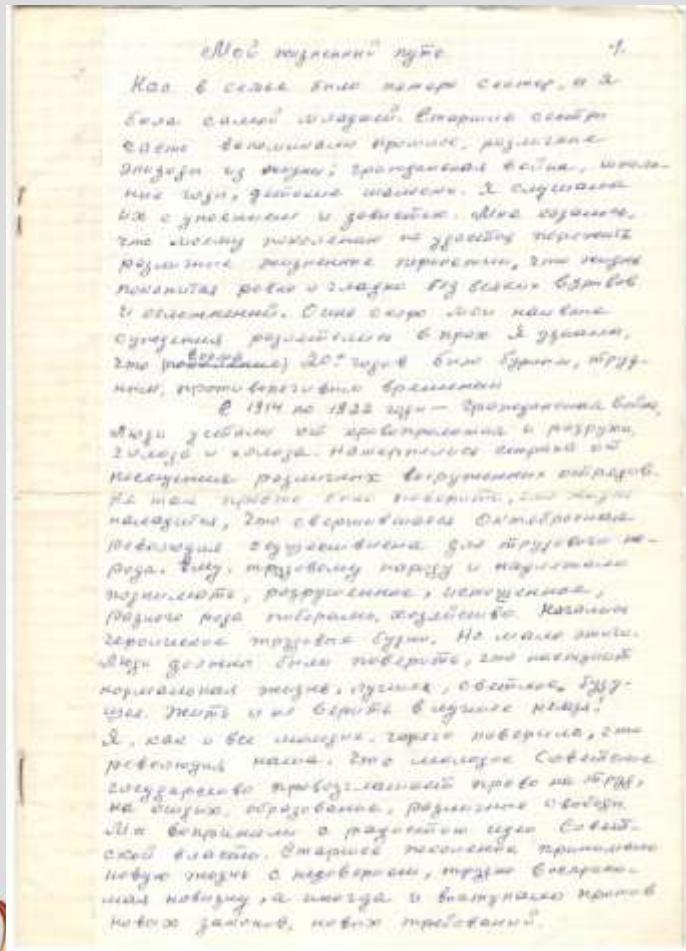 Мой жизненный путь 1.
Нас в семье было четверо сестер, а я
была самой младшей. Старшие сестры
часто вспоминали прошлое, различные
эпизоды из жизни: гражданская война, школь-
ные годы, детские шалости. Я слушала
их с упоением и завистью. Мне казалось,
что моему поколению не удастся пережить
различные жизненные перипетии, что жизнь
покатится ровно и гладко без всяких взрывов
и осложнений. Очень скоро мои наивные
суждения разлетелись в прах. Я узнала,
что время 20х годов было бурным, труд-
ным, противоречивым временем
С 1914 по 1922 годы — Гражданская война,
Люди устали от кровопролития и разрухи,
голода и холода. Натерпелись страха от
посещения различных вооруженных отрядов.
Не так просто было поверить, что жизнь
наладится, что свершившаяся Октябрьская
революция осуществлена для трудового на-
рода. Ему, трудовому народу и надлежало
поднимать, разрушенное, истощенное,
разного рода поборами, хозяйство. Начались
героические трудовые будни. Но мало этого.
Люди должны были поверить, что наступит
нормальная жизнь, лучшее, светлое, буду-
щее. Жить и не верить в лучшее нельзя!
Я, как и все молодые, горячо поверила, что
революция наша. Что молодое Советское
государство провозглашает право на труд,
на отдых, образование, различные свободы.
Мы восприняли с радостью идеи Совет-
ской власти. Старшее поколение принимало
новую жизнь с недоверием, трудно восприни-
мая новизну, а иногда и выступало против
новых законов, новых требований.